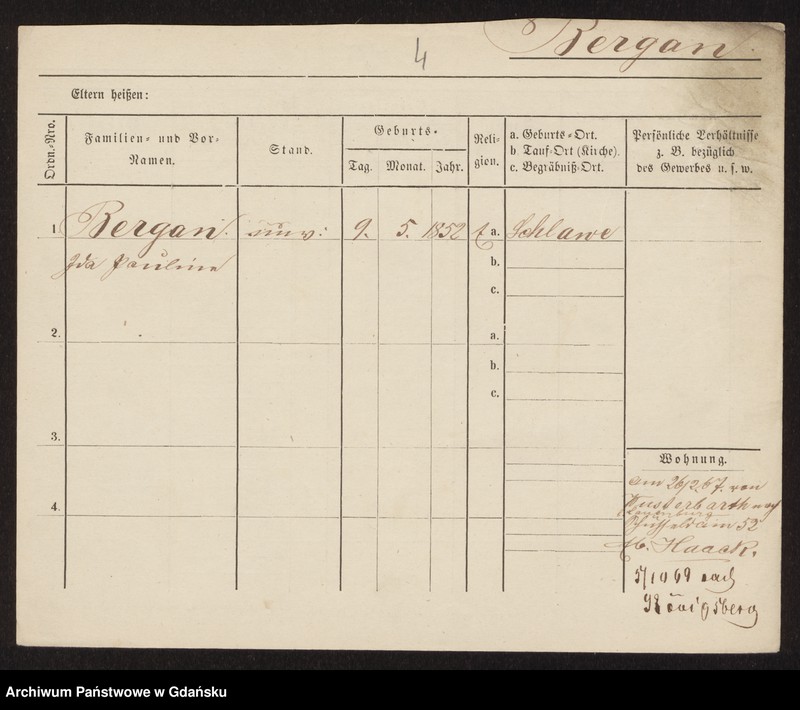 4
Bergan.
Eltern heißen:
Ordn.-Nro.
Familien- und Vor-
Namen.
Stand.
Geburts-
Tag.
Monat.
Jahr.
Reli-
gion.
a. Geburts-Ort.
b Tauf-Ort (Kirche).
c. Begräbniß-Ort.
Persönliche Verhältnisse
z. B. bezüglich
des Gewerbes u. s. w.
1. Bergan. unv: 9. 5. 1852 a. Schlawe
Ida Pauline b.
c.
2. a.
b.
c.
3.
4.
Wohnung.
am 26/2.67. von
nach
52
Haack.
5/10 69 nach
Königsberg
Archiwum Państwowe w Gdańsku